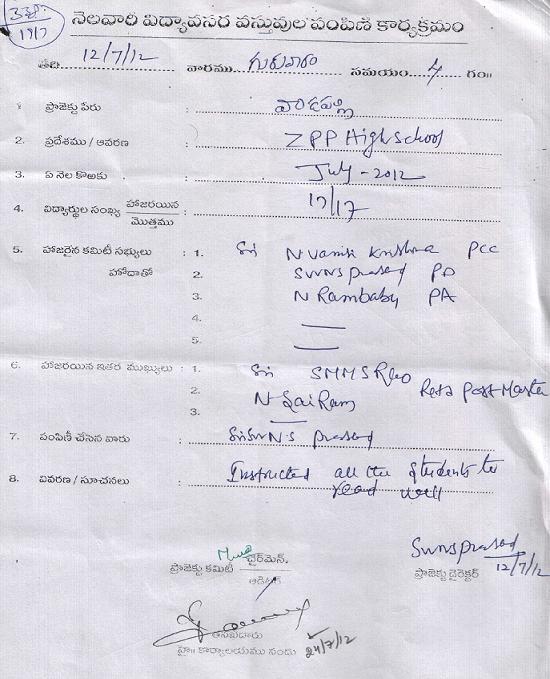 17/7
నెలవారి విద్యావసర వస్తువుల పంపిణి కార్యక్రమం
తేది 12/7/12 వారము గురువారం సమయం 4 గం॥
1. ప్రాజెక్టు పేరు :
2. ప్రదేశము / ఆవరణ : ZPP High school
3. ఏ నెల కొఱకు : July - 2012
4. విద్యార్థుల సంఖ్య హాజరయిన / మొత్తము : 17/17
5. హాజరైన కమిటీ సభ్యులు : 1. Sri N Vamsi Krishna PCC
హోదాతో 2. SVVNS Prasad PD
3. N Rambabu PA
4.
5.
6. హాజరయిన ఇతర ముఖ్యులు : 1. Sri SMMS Rao Retd Post-Master
2. N Sai Ram
3.
7. పంపిణీ చేసిన వారు : Sri SVVNS Prasad
8. వివరణ / సూచనలు : Instructed all the students to
read well
ప్రాజెక్టు కమిటీ చైర్‌మెన్.
ఆడిటర్
SVVNS Prasad
12/7/12
ప్రాజెక్టు డైరెక్టర్
హై॥ కార్యాలయము నందు 24/7/12